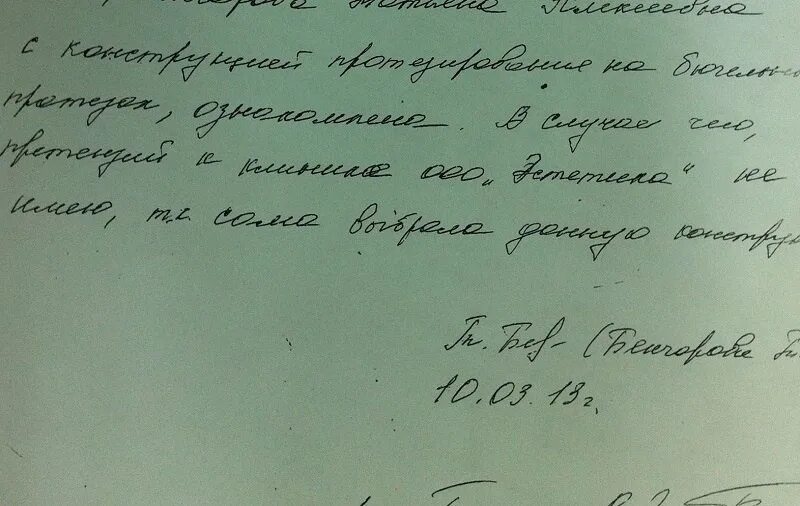 Татьяна Алексеевна
с конструкцией протезирования на бюгельны
протезах, ознакомлена. В случае чего,
претензий к клинике ООО „Эстетика" не
имею, т.к. сама выбрала данную конструк
10.03.13г.